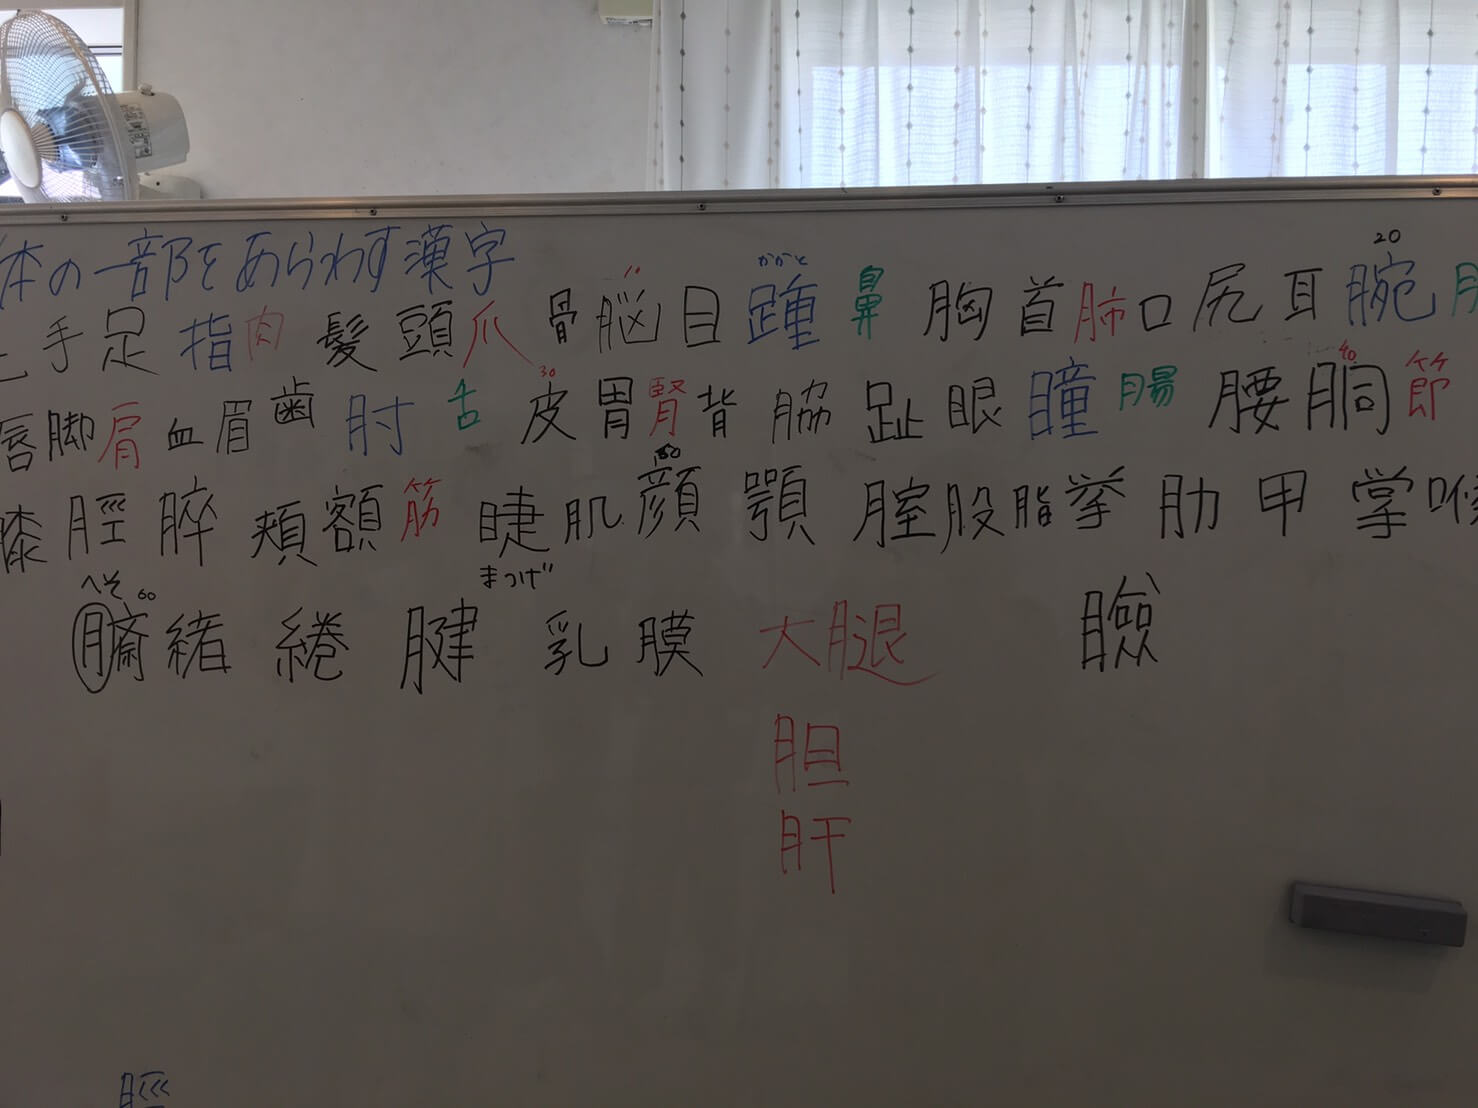 体の一部をあらわす漢字
手 足 指 肉 髪 頭 爪 骨 脳 目 踵 鼻 胸 首 肺 口 尻 耳 腕
かかと
20
唇 脚 肩 血 眉 歯 肘 舌 皮 胃 腎 背 脇 趾 眼 瞳 腸 腰 胴 節
30
40
膝 脛 膵 頬 額 筋 睫 肌 顔 顎 腟 股 脂 拳 肋 甲 掌 喉
まつげ
へそ 60
臍 緒 綣 腱 乳 膜 大腿 瞼
胆
肝
脛